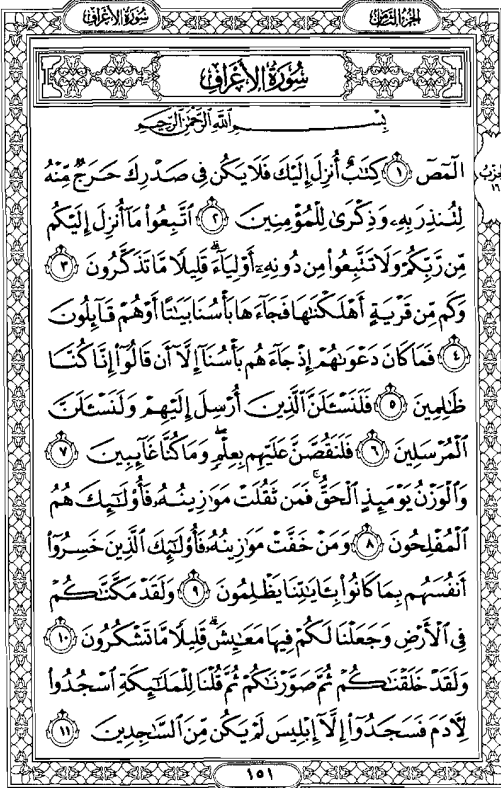 الجُزْءُ الثَّامِنُ
سُورَةُ الأَعْرَافِ
سُورَةُ الأَعْرَافِ
بِسْمِ اللَّهِ الرَّحْمَٰنِ الرَّحِيمِ
الٓمٓصٓ ١ كِتَٰبٌ أُنزِلَ إِلَيْكَ فَلَا يَكُن فِي صَدْرِكَ حَرَجٌ مِّنْهُ
حِزْب ١٦
لِتُنذِرَ بِهِۦ وَذِكْرَىٰ لِلْمُؤْمِنِينَ ٢ ٱتَّبِعُوا۟ مَآ أُنزِلَ إِلَيْكُم
مِّن رَّبِّكُمْ وَلَا تَتَّبِعُوا۟ مِن دُونِهِۦٓ أَوْلِيَآءَ ۗ قَلِيلًا مَّا تَذَكَّرُونَ ٣
وَكَم مِّن قَرْيَةٍ أَهْلَكْنَٰهَا فَجَآءَهَا بَأْسُنَا بَيَٰتًا أَوْ هُمْ قَآئِلُونَ
٤ فَمَا كَانَ دَعْوَىٰهُمْ إِذْ جَآءَهُم بَأْسُنَآ إِلَّآ أَن قَالُوٓا۟ إِنَّا كُنَّا
ظَٰلِمِينَ ٥ فَلَنَسْـَٔلَنَّ ٱلَّذِينَ أُرْسِلَ إِلَيْهِمْ وَلَنَسْـَٔلَنَّ
ٱلْمُرْسَلِينَ ٦ فَلَنَقُصَّنَّ عَلَيْهِم بِعِلْمٍ ۖ وَمَا كُنَّا غَآئِبِينَ ٧
وَٱلْوَزْنُ يَوْمَئِذٍ ٱلْحَقُّ ۚ فَمَن ثَقُلَتْ مَوَٰزِينُهُۥ فَأُو۟لَٰٓئِكَ هُمُ
ٱلْمُفْلِحُونَ ٨ وَمَنْ خَفَّتْ مَوَٰزِينُهُۥ فَأُو۟لَٰٓئِكَ ٱلَّذِينَ خَسِرُوٓا۟
أَنفُسَهُم بِمَا كَانُوا۟ بِـَٔايَٰتِنَا يَظْلِمُونَ ٩ وَلَقَدْ مَكَّنَّٰكُمْ
فِي ٱلْأَرْضِ وَجَعَلْنَا لَكُمْ فِيهَا مَعَٰيِشَ ۗ قَلِيلًا مَّا تَشْكُرُونَ ١٠
وَلَقَدْ خَلَقْنَٰكُمْ ثُمَّ صَوَّرْنَٰكُمْ ثُمَّ قُلْنَا لِلْمَلَٰٓئِكَةِ ٱسْجُدُوا۟
لِـَٔادَمَ فَسَجَدُوٓا۟ إِلَّآ إِبْلِيسَ لَمْ يَكُن مِّنَ ٱلسَّٰجِدِينَ ١١
١٥١